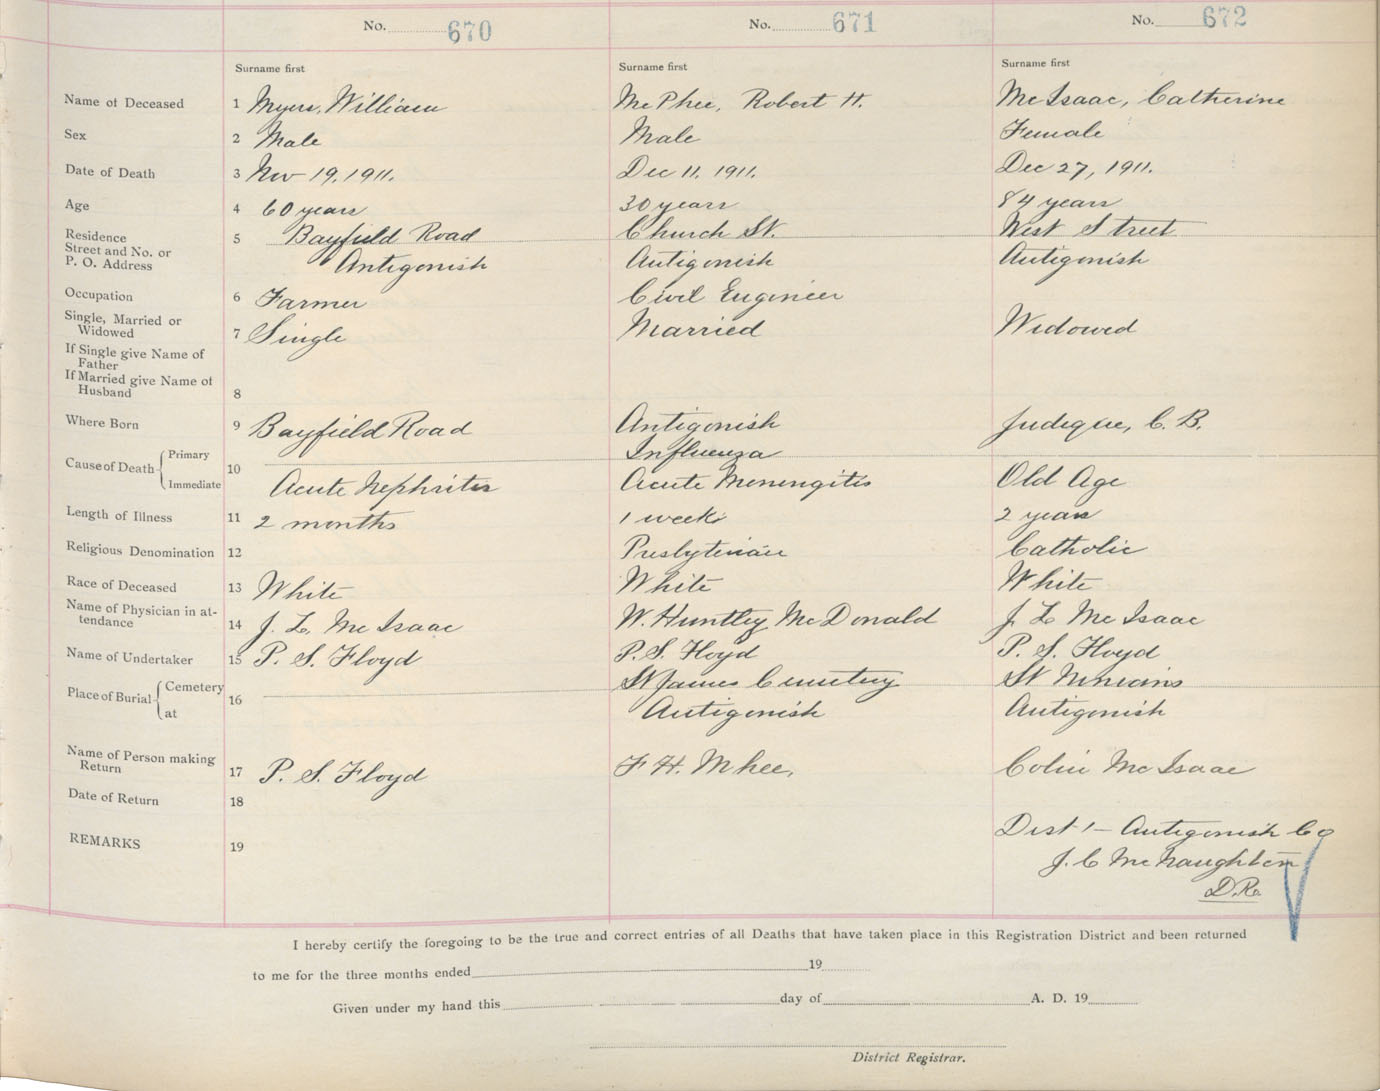 No. 670 No. 671 No. 672
Surname first Surname first Surname first
Name of Deceased 1 Myers, William McPhee, Robert H. McIsaac, Catherine
Sex 2 Male Male Female
Date of Death 3 Nov 19, 1911. Dec 11. 1911. Dec 27, 1911.
Age 4 60 years 30 years 84 years
Residence 5 Bayfield Road Church St. West Street
Street and No. or
P. O. Address Antigonish Antigonish Antigonish
Occupation 6 Farmer Civil Engineer
Single, Married or
Widowed 7 Single Married Widowed
If Single give Name of
Father
If Married give Name of
Husband 8
Where Born 9 Bayfield Road Antigonish Judique, C. B.
Cause of Death Primary 10 Influenza
Immediate Acute Nephritis Acute Meningitis Old Age
Length of Illness 11 2 months 1 week 2 years
Religious Denomination 12 Presbyterian Catholic
Race of Deceased 13 White White White
Name of Physician in at-
tendance 14 J. L. McIsaac W. Huntley McDonald J. L. McIsaac
Name of Undertaker 15 P. S. Floyd P. S. Floyd P. S. Floyd
Place of Burial Cemetery 16 St James Cemetery St Ninians
at Antigonish Antigonish
Name of Person making
Return 17 P. S. Floyd F. H. Colin McIsaac
Date of Return 18
REMARKS 19 Dist 1 - Antigonish Co
J. C McNaughton
D.R.
I hereby certify the foregoing to be the true and correct entries of all Deaths that have taken place in this Registration District and been returned
to me for the three months ended 19
Given under my hand this day of A. D. 19
District Registrar.